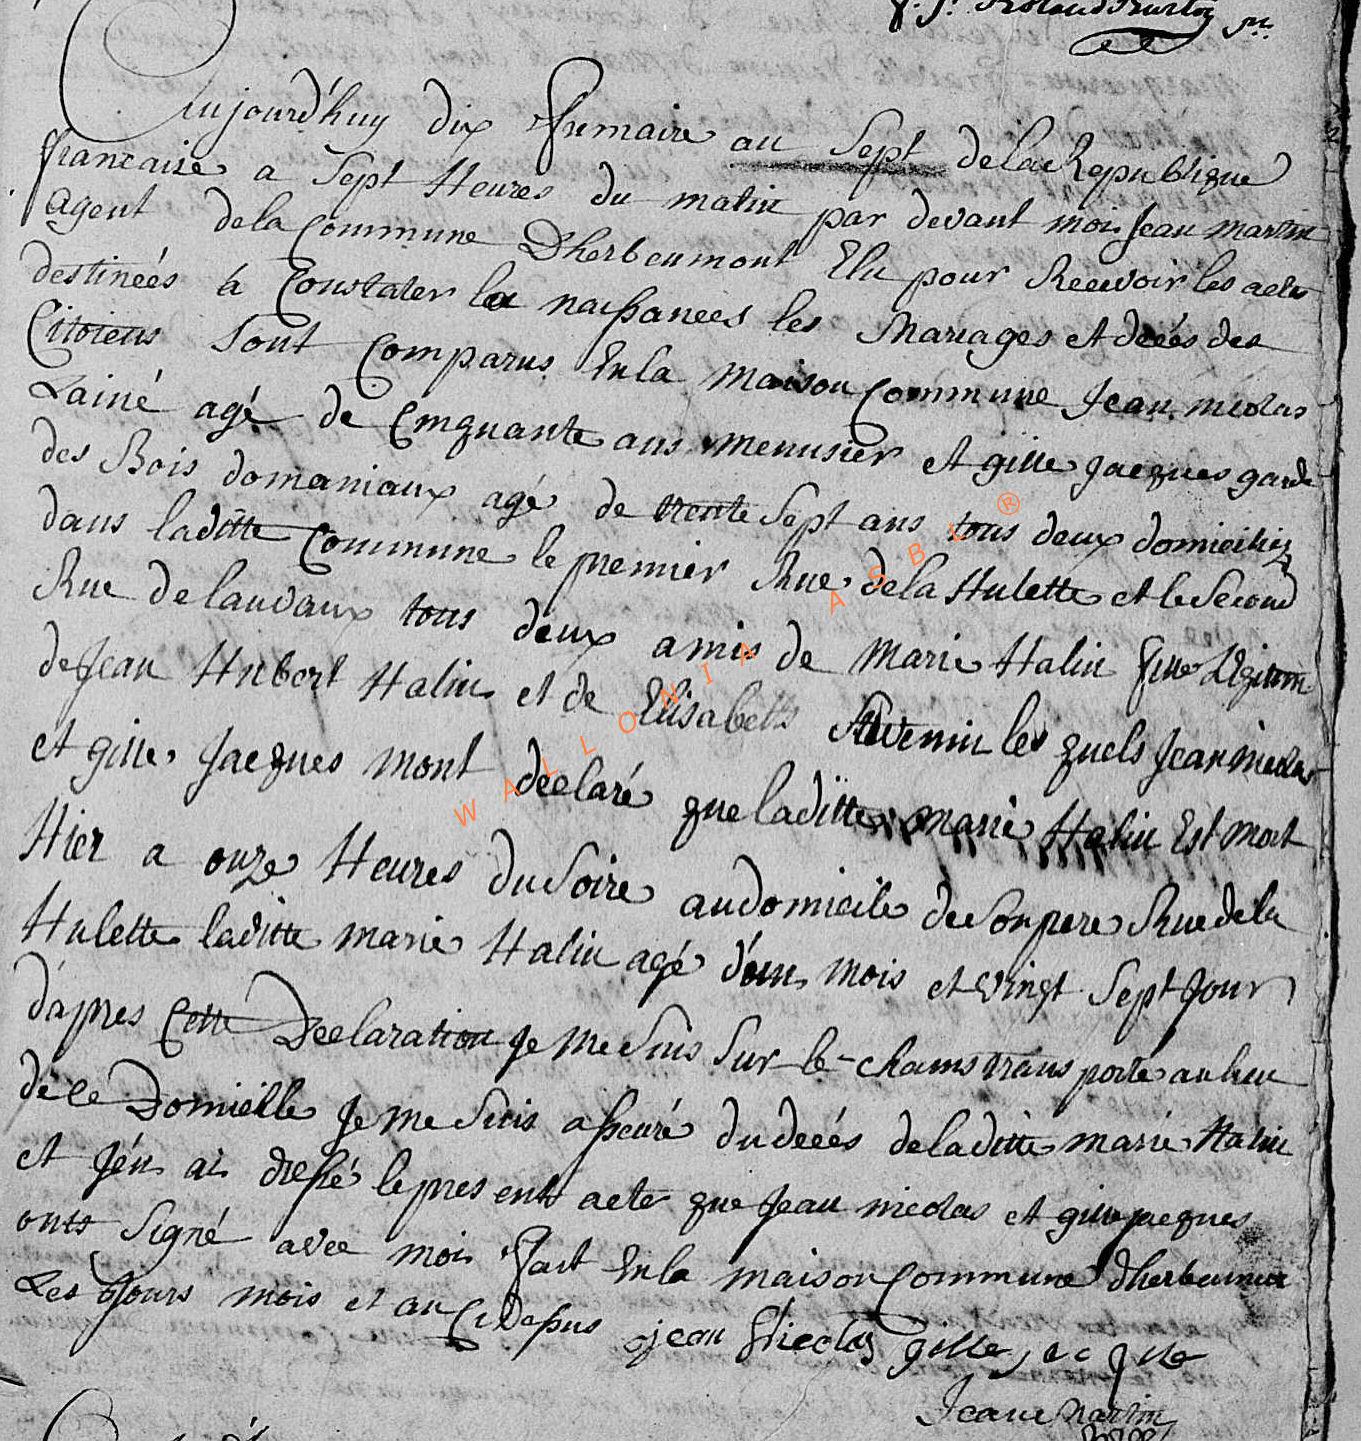 Aujourd'huy dix frimaire au Sept de la Republique
francaise a Sept Heures du matin par devant moi Jean martin
agent de la Commune Dherbeumont Elu pour Recevoir les actes
destineés a Constater la naissances les Mariages et decés des
Citoiens Sont Comparus En la maison Commune Jean nicolas
Lainé agé de Cinquante ans menusier et gille Jacques garde
des Bois domaniaux agé de trente Sept ans tous deux domiciliez
dans laditte Commune le premier Rue de la Hulette et le Second
Rue de lauvaux tous deux amis de marie Halin fille
de Jean Hubert Halin et de Elisabeth les quels Jean nicolas
et gille Jacques mont declaré que laditte marie Halin Est mort
Hier a onze Heures du Soire au domicile de Son pere Rue de la
Hulette laditte marie Halin agé d'un mois et vingt Sept Jour
d'apres Cette Declaration Je me Suis Sur le-chams trans porté au lieu
de ce Domicille Je me Suis asseuré du decés de laditte marie Halin
et J'en ai dressé le pres ent acte que Jean nicolas et gille jacques
ont Signé avec moi fait En la maison Commune dherbeumon
Les Jours mois et an Ci Dessus jean Nicolas gille jacque
Jean martin
WALLONIA ASBL ®